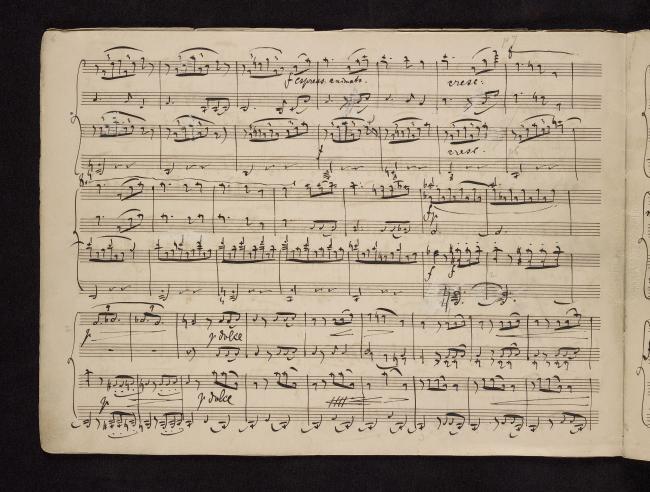 f espress. animato. cresc.
f
cresc.
p
f
p p dolce
p p dolce